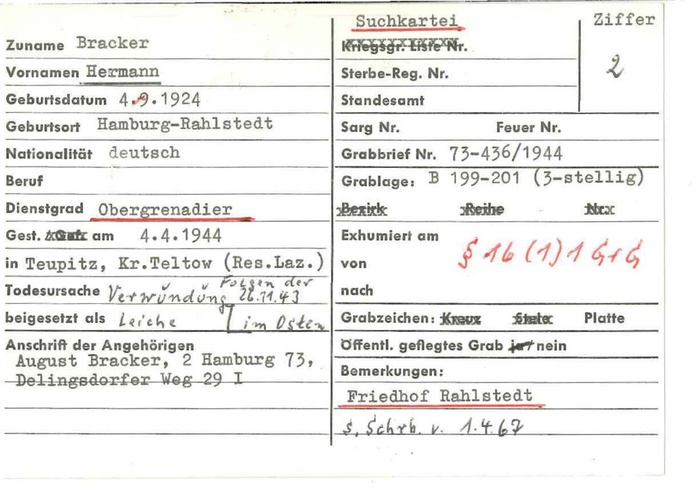 Suchkartei
Ziffer
2
Zuname Bracker
Vornamen Hermann
Geburtsdatum 4.9.1924
Geburtsort Hamburg-Rahlstedt
Nationalität deutsch
Beruf
Dienstgrad Obergrenadier
Gest. Gef. am 4.4.1944
in Teupitz, Kr.Teltow (Res.Laz.)
Todesursache Verwundung Folgen der 26.11.43
beigesetzt als Leiche [im Osten
Anschrift der Angehörigen
August Bracker, 2 Hamburg 73,
Delingsdorfer Weg 29 I
Kriegsgr. Liste Nr.
Sterbe-Reg. Nr.
Standesamt
Sarg Nr. Feuer Nr.
Grabbrief Nr. 73-436/1944
Grablage: B 199-201 (3-stellig)
Bezirk Reihe Nr.
Exhumiert am
§ 16 (1) 1 GrG
von
nach
Grabzeichen: Kreuz Stele Platte
Öffentl. gepflegtes Grab ja/nein
Bemerkungen:
Friedhof Rahlstedt
s. Schrb. v. 1.4.67